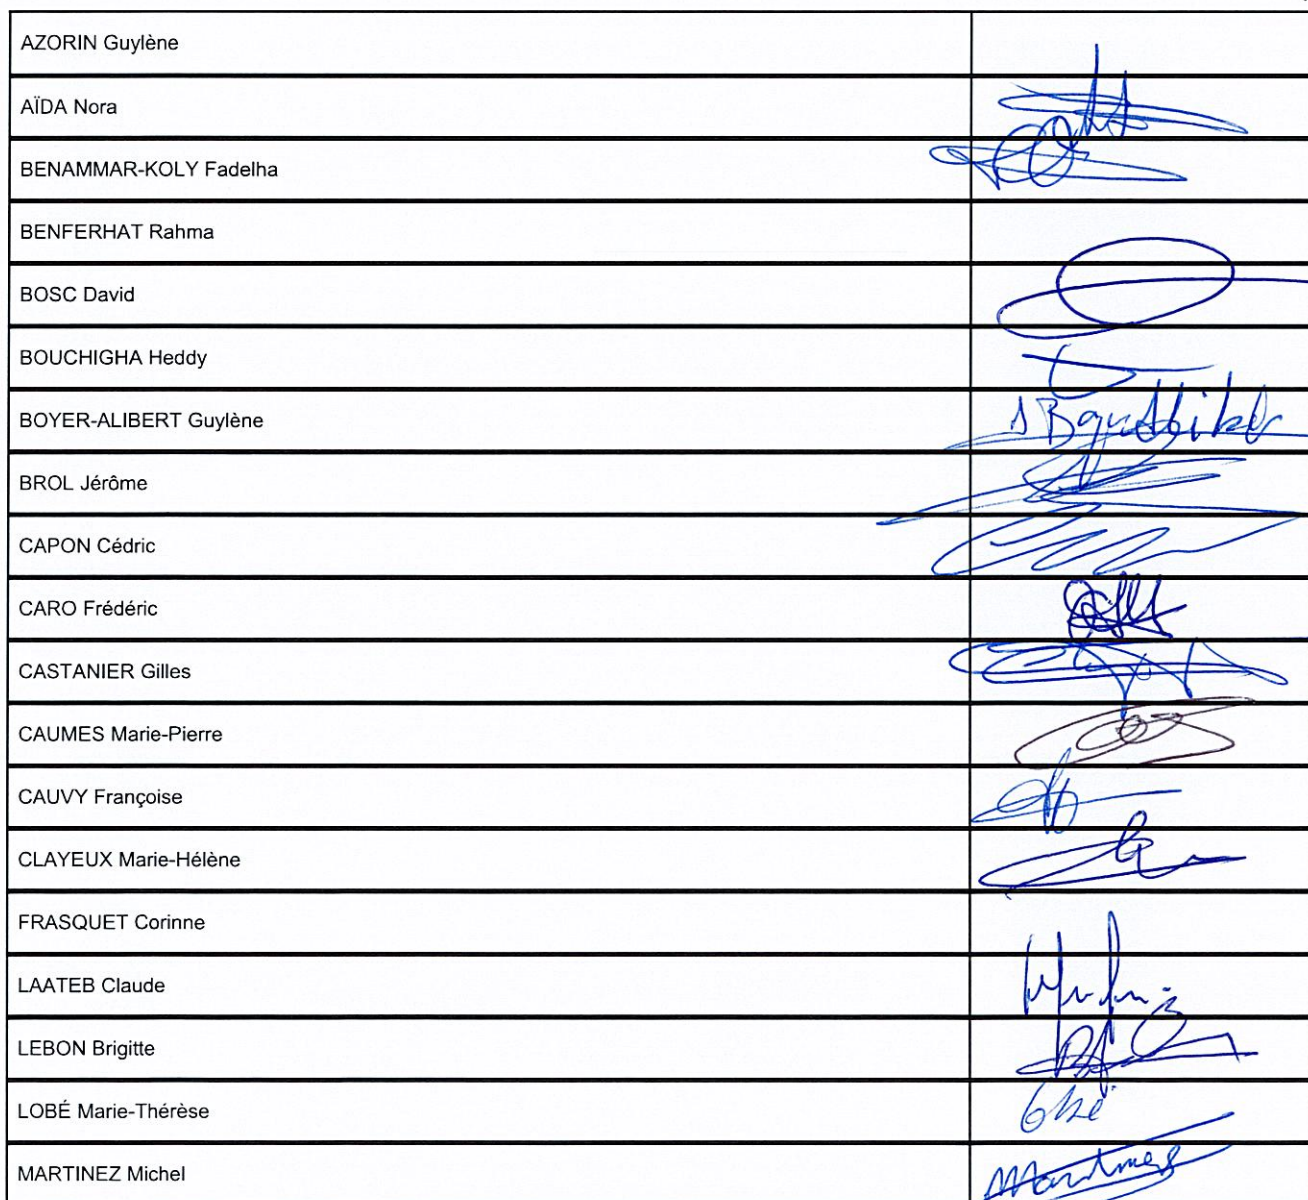 AZORIN Guylène
AÏDA Nora
BENAMMAR-KOLY Fadelha
BENFERHAT Rahma
BOSC David
BOUCHIGHA Heddy
BOYER-ALIBERT Guylène
BROL Jérôme
CAPON Cédric
CARO Frédéric
CASTANIER Gilles
CAUMES Marie-Pierre
CAUVY Françoise
CLAYEUX Marie-Hélène
FRASQUET Corinne
LAATEB Claude
LEBON Brigitte
LOBÉ Marie-Thérèse
MARTINEZ Michel Martinez